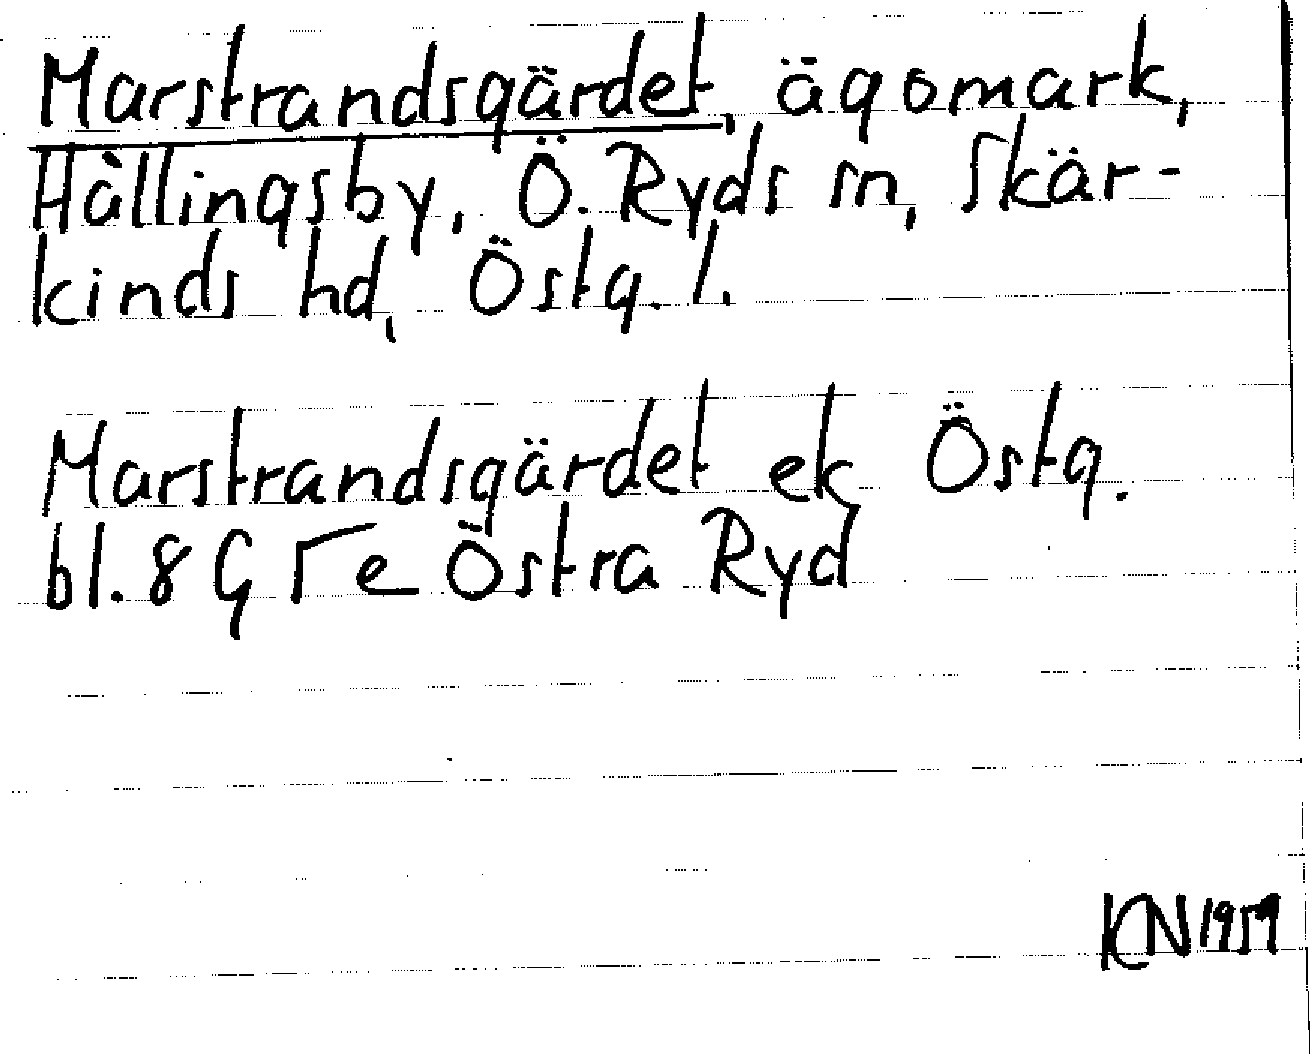 Marstrandsgärdet, ägomark,
Hällingsby, Ö. Ryds sn, Skär-
kinds hd, Östg. l.
Marstrandsgärdet ek Östg.
bl. 8 G Γe Östra Ryd
KN 1959